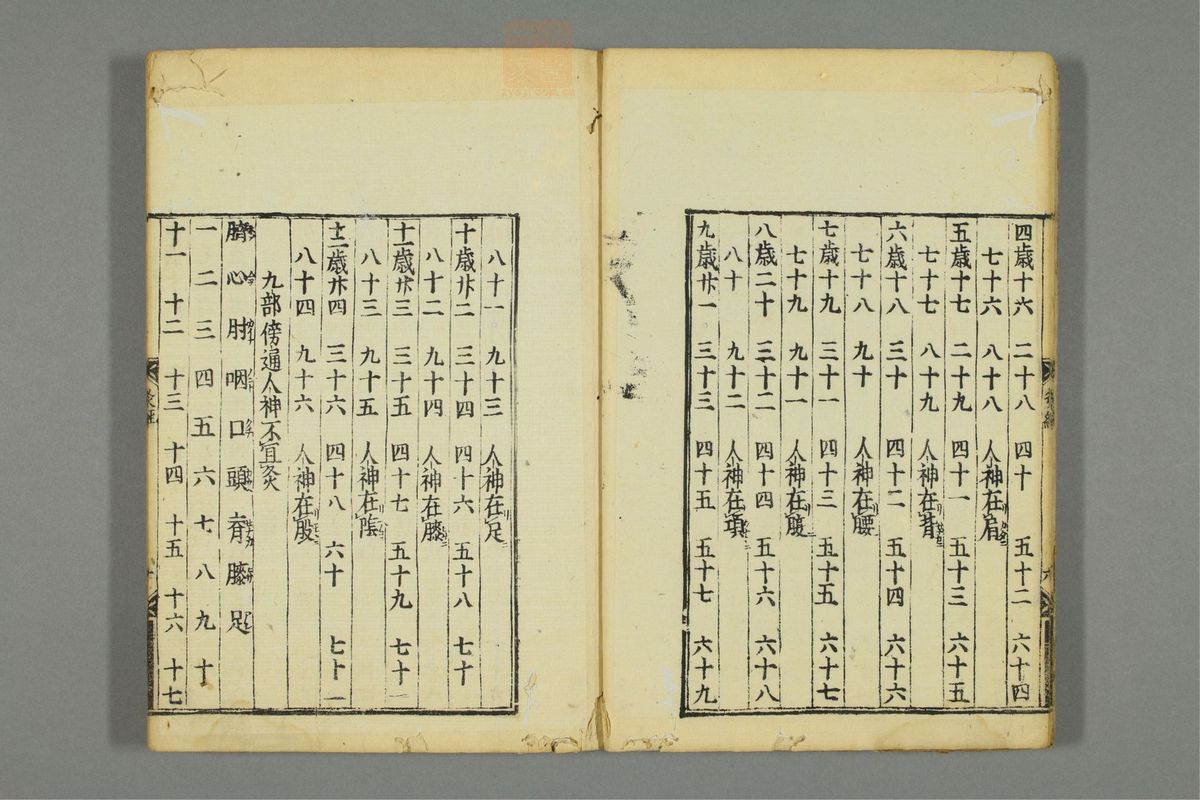 四歳十六 二十八 四十 五十二 六十四
七十六 八十八 人神在肩
五歳十七 二十九 四十一 五十三 六十五
七十七 八十九 人神在背
六歳十八 三十 四十二 五十四 六十六
七十八 九十 人神在腰
七歳十九 三十一 四十三 五十五 六十七
七十九 九十一 人神在
八歳二十 三十二 四十四 五十六 六十八
八十 九十二 人神在項
九歳廾一 三十三 四十五 五十七 六十九
八十一 九十三 人神在足
十歳廾二 三十四 四十六 五十八 七十
八十二 九十四 人神在膝
十一歳廾三 三十五 四十七 五十九 七十一
八十三 九十五 人神在陰
十二歳廾四 三十六 四十八 六十 七十二
八十四 九十六 人神在股
九部傍通人神不宜灸
臍 心 肘 咽 口 頭 脊 膝 足
一 二 三 四 五 六 七 八 九 十
十一 十二 十三 十四 十五 十六 十七